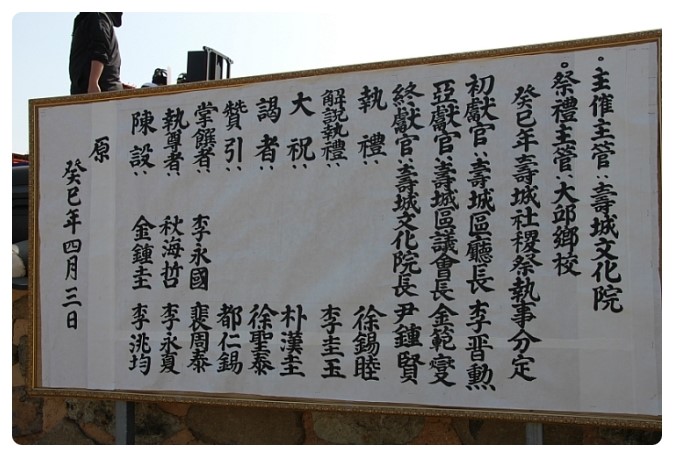 主催主管:壽城文化院
祭禮主管:大邱鄕校
癸巳年壽城社稷祭執事分定
初獻官:壽城區廳長 李晋勳
亞獻官:壽城區議會長 金範燮
終獻官:壽城文化院長 尹鍾賢
執禮: 徐錫睦
解說執禮: 李圭玉
大祝: 朴漢圭
謁者: 徐聖泰
贊引: 都仁錫
掌饌者: 李永國 裵周泰
執尊者: 秋海哲 李永夏
陳設: 金鍾圭 李洮均
原
癸巳年四月三日